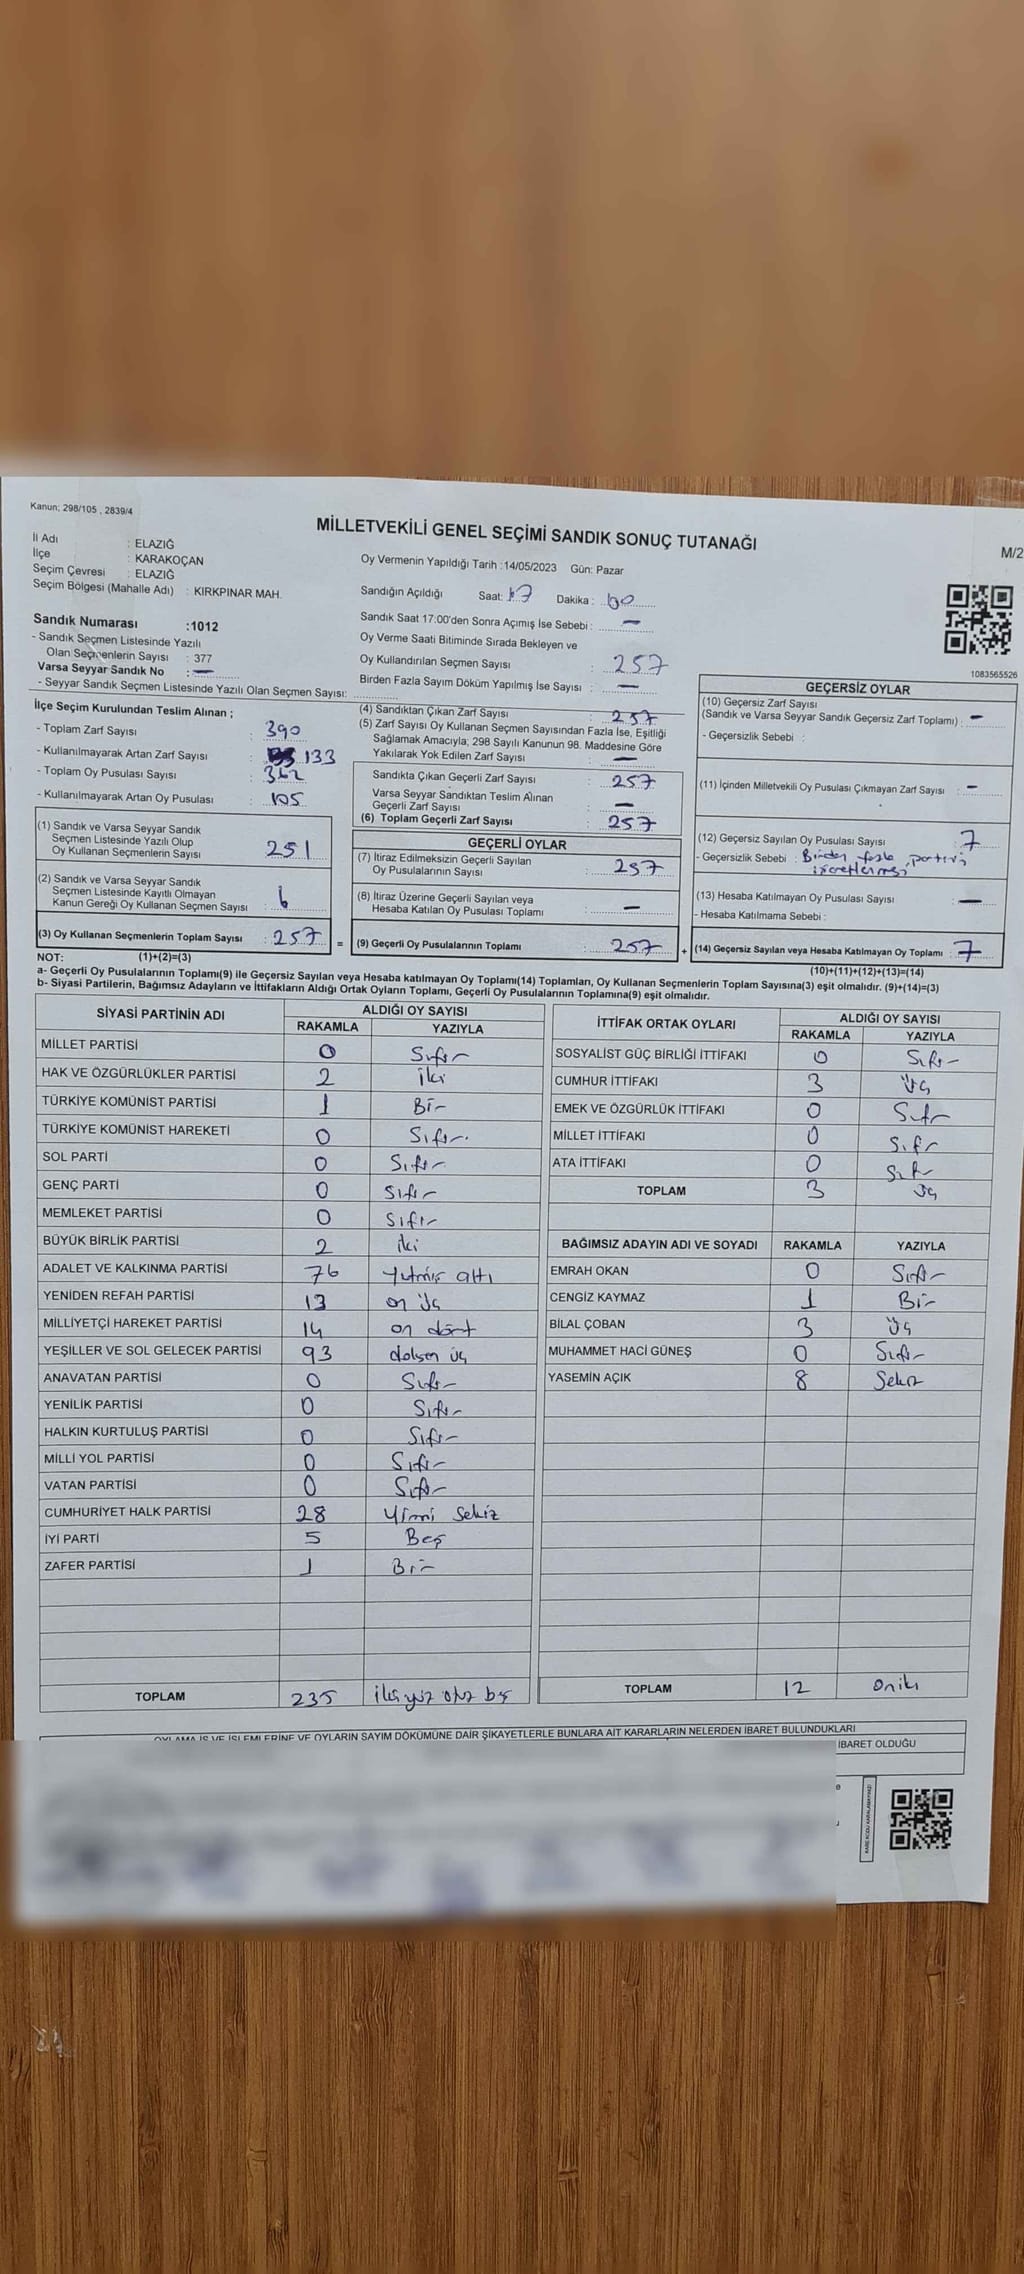 Kanun; 298/105 , 2839/4
MİLLETVEKİLİ GENEL SEÇİMİ SANDIK SONUÇ TUTANAĞI
M/2
İl Adı : ELAZIĞ
İlçe : KARAKOÇAN
Seçim Çevresi : ELAZIĞ
Seçim Bölgesi (Mahalle Adı) : KIRKPINAR MAH.
Sandık Numarası :1012
- Sandık Seçmen Listesinde Yazılı
Olan Seçmenlerin Sayısı : 377
Varsa Seyyar Sandık No : —
- Seyyar Sandık Seçmen Listesinde Yazılı Olan Seçmen Sayısı:
Oy Vermenin Yapıldığı Tarih :14/05/2023 Gün: Pazar
Sandığın Açıldığı Saat: 17 Dakika : 00
Sandık Saat 17:00'den Sonra Açımış İse Sebebi : —
Oy Verme Saati Bitiminde Sırada Bekleyen ve
Oy Kullandırılan Seçmen Sayısı : 257
Birden Fazla Sayım Döküm Yapılmış İse Sayısı : —
1083565526
İlçe Seçim Kurulundan Teslim Alınan ;
- Toplam Zarf Sayısı : 390
- Kullanılmayarak Artan Zarf Sayısı : 133
- Toplam Oy Pusulası Sayısı : 362
- Kullanılmayarak Artan Oy Pusulası : 105
(1) Sandık ve Varsa Seyyar Sandık
Seçmen Listesinde Yazılı Olup
Oy Kullanan Seçmenlerin Sayısı : 251
(2) Sandık ve Varsa Seyyar Sandık
Seçmen Listesinde Kayıtlı Olmayan
Kanun Gereği Oy Kullanan Seçmen Sayısı : 6
(3) Oy Kullanan Seçmenlerin Toplam Sayısı : 257 =
(4) Sandıktan Çıkan Zarf Sayısı : 257
(5) Zarf Sayısı Oy Kullanan Seçmen Sayısından Fazla İse, Eşitliği
Sağlamak Amacıyla; 298 Sayılı Kanunun 98. Maddesine Göre
Yakılarak Yok Edilen Zarf Sayısı : —
Sandıkta Çıkan Geçerli Zarf Sayısı : 257
Varsa Seyyar Sandıktan Teslim Alınan
Geçerli Zarf Sayısı : —
(6) Toplam Geçerli Zarf Sayısı : 257
GEÇERLİ OYLAR
(7) İtiraz Edilmeksizin Geçerli Sayılan
Oy Pusulalarının Sayısı : 257
(8) İtiraz Üzerine Geçerli Sayılan veya
Hesaba Katılan Oy Pusulası Toplamı : —
(9) Geçerli Oy Pusulalarının Toplamı : 257 +
GEÇERSİZ OYLAR
(10) Geçersiz Zarf Sayısı
(Sandık ve Varsa Seyyar Sandık Geçersiz Zarf Toplamı) : —
- Geçersizlik Sebebi :
(11) İçinden Milletvekili Oy Pusulası Çıkmayan Zarf Sayısı : —
(12) Geçersiz Sayılan Oy Pusulası Sayısı : 7
- Geçersizlik Sebebi : Birden fazla partiyi
işaretlemesi
(13) Hesaba Katılmayan Oy Pusulası Sayısı : —
- Hesaba Katılmama Sebebi :
(14) Geçersiz Sayılan veya Hesaba Katılmayan Oy Toplamı : 7
NOT: (1)+(2)=(3) (10)+(11)+(12)+(13)=(14)
a- Geçerli Oy Pusulalarının Toplamı(9) ile Geçersiz Sayılan veya Hesaba katılmayan Oy Toplamı(14) Toplamları, Oy Kullanan Seçmenlerin Toplam Sayısına(3) eşit olmalıdır. (9)+(14)=(3)
b- Siyasi Partilerin, Bağımsız Adayların ve İttifakların Aldığı Ortak Oyların Toplamı, Geçerli Oy Pusulalarının Toplamına(9) eşit olmalıdır.
SİYASİ PARTİNİN ADI ALDIĞI OY SAYISI
RAKAMLA YAZIYLA
MİLLET PARTİSİ 0 Sıfır
HAK VE ÖZGÜRLÜKLER PARTİSİ 2 İki
TÜRKİYE KOMÜNİST PARTİSİ 1 Bir
TÜRKİYE KOMÜNİST HAREKETİ 0 Sıfır
SOL PARTİ 0 Sıfır
GENÇ PARTİ 0 Sıfır
MEMLEKET PARTİSİ 0 Sıfır
BÜYÜK BİRLİK PARTİSİ 2 iki
ADALET VE KALKINMA PARTİSİ 76 Yetmiş altı
YENİDEN REFAH PARTİSİ 13 on üç
MİLLİYETÇİ HAREKET PARTİSİ 14 on dört
YEŞİLLER VE SOL GELECEK PARTİSİ 93 doksan üç
ANAVATAN PARTİSİ 0 Sıfır
YENİLİK PARTİSİ 0 Sıfır
HALKIN KURTULUŞ PARTİSİ 0 Sıfır
MİLLİ YOL PARTİSİ 0 Sıfır
VATAN PARTİSİ 0 Sıfır
CUMHURİYET HALK PARTİSİ 28 Yirmi Sekiz
İYİ PARTİ 5 Beş
ZAFER PARTİSİ 1 Bir
TOPLAM 235 iki yüz otuz beş
İTTİFAK ORTAK OYLARI ALDIĞI OY SAYISI
RAKAMLA YAZIYLA
SOSYALİST GÜÇ BİRLİĞİ İTTİFAKI 0 Sıfır
CUMHUR İTTİFAKI 3 Üç
EMEK VE ÖZGÜRLÜK İTTİFAKI 0 Sıfır
MİLLET İTTİFAKI 0 Sıfır
ATA İTTİFAKI 0 Sıfır
TOPLAM 3 Üç
BAĞIMSIZ ADAYIN ADI VE SOYADI RAKAMLA YAZIYLA
EMRAH OKAN 0 Sıfır
CENGİZ KAYMAZ 1 Bir
BİLAL ÇOBAN 3 Üç
MUHAMMET HACİ GÜNEŞ 0 Sıfır
YASEMİN AÇIK 8 Sekiz
TOPLAM 12 Oniki
OYLAMA İŞ VE İŞLEMLERİNE VE OYLARIN SAYIM DÖKÜMÜNE DAİR ŞİKAYETLERLE BUNLARA AİT KARARLARIN NELERDEN İBARET BULUNDUKLARI
İBARET OLDUĞU